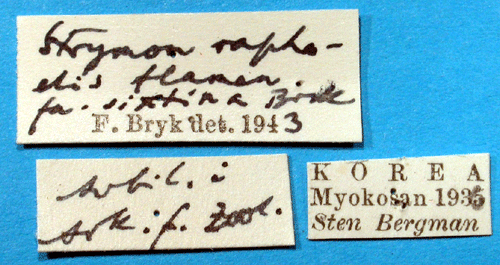 Strymon rapha-
elis flamen.
fa. sixtina Bryk
F. Bryk det. 1943
Avbil. i
Ark. f. Zool.
KOREA
Myokosan 1935
Sten Bergman